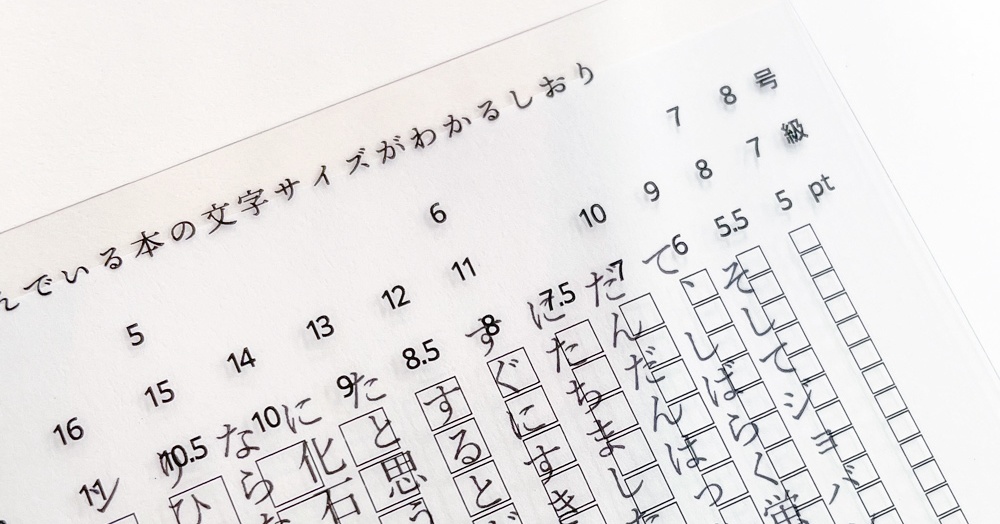 んでいる本の文字サイズがわかるしおり
5 6 7 8 号
16 15 14 13 12 11 10 9 8 7 級
11 10.5 10 9 8.5 8 7.5 7 6 5.5 5 pt
そしてジョバ
て、しばらく蛍
だんだんはっ
にたちました
すぐにすき
するとど
たと思う
に化石
なら
りひ